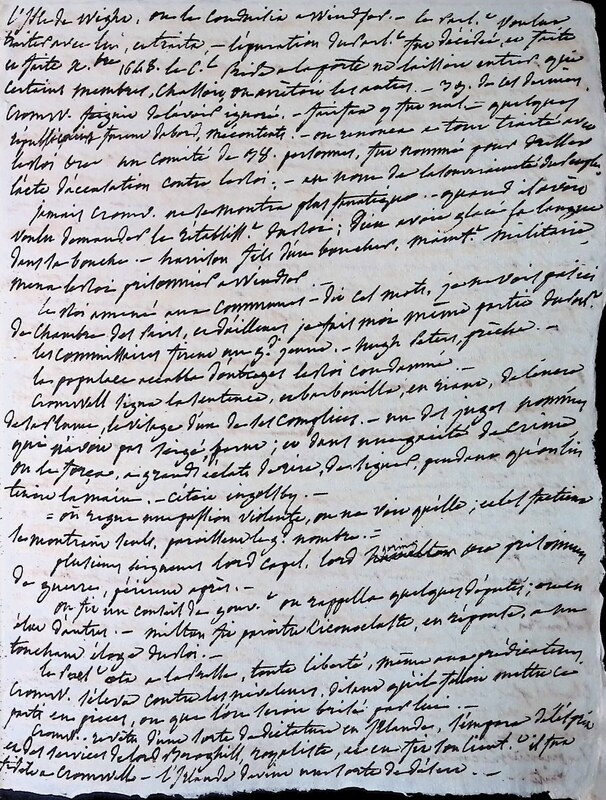 l'Isle de Wight, on le conduisit a Windsor. – le Parl.t voulut
traiter avec lui, et traita. – l'épuration du Parl.t fut décidée, et faite
en X.bre 1648. le C.l Pride a la porte ne laissoit entrer que
certains membres, chassoit ou arrêtoit les autres. – 39. de ces derniers.
Cromw. feignit de l'avoir ignoré. – Fairfax y fut nul. – quelques
républicains furent d'abord mécontents. – on renonça a tout traité avec
le Roi et un Comité de 38. personnes, fut nommé pour dresser
l'acte d'accusation contre le Roi. – au nom de la souveraineté du peuple
jamais Cromw. ne se montra plus fanatique. – quand il avoit
voulu demander le rétabliss.t du Roi, Dieu avoit glacé sa langue
dans sa bouche. – harrison fils d'un boucher, maint.t militaire,
mena le Roi prisonnier a Windsor. –
le Roi amené aux communes – dit ces mots, je ne vois point ici
de chambre des Pairs, et d'ailleurs je fais moi même partie du Parl.t
les commissaires firent un g.d jeune. – hugh Peters, prêcha. –
la populace accabla d'outrages le Roi condamné
Cromwell signa la sentence, et barbouilla, en riant, de l'encre
de sa plume, le visage d'un de ses complices. – un des juges nommés
qui n'avoit pas siégé, parut; et dans une gaieté de crime
on le força, a grands éclats de rire, de signer, pendant qu'on lui
tenait la main. – c'étoit engolsby. –
= où règne une passion violente, on ne voit qu'elle, et les factieux
se montrant seuls, paroissent le g.d nombre. –
plusieurs seigneurs lord Capel, lord norwich
de guerre, périrent après. –
on fit un conseil de gouv.t on rappella quelques députés; on en
élut d'autres. – milton fit paroitre l'iconoclaste, en réponse, a un
touchant éloge du Roi. –
le Parl.t ota a la Presse, toute liberté, même aux prédicateurs.
Cromw. s'éleva contre les niveleurs, disant qu'il falloit mettre ce
parti en pieces, ou que l'on seroit brisé par lui. –
Cromw. revetu d'une sorte de dictature en Irlande, s'empara de l'esprit
et des services de lord Broghill, royaliste, et en fit son lieut.t il fut
fidele a Cromwell – l'Irlande devint une sorte de désert. –